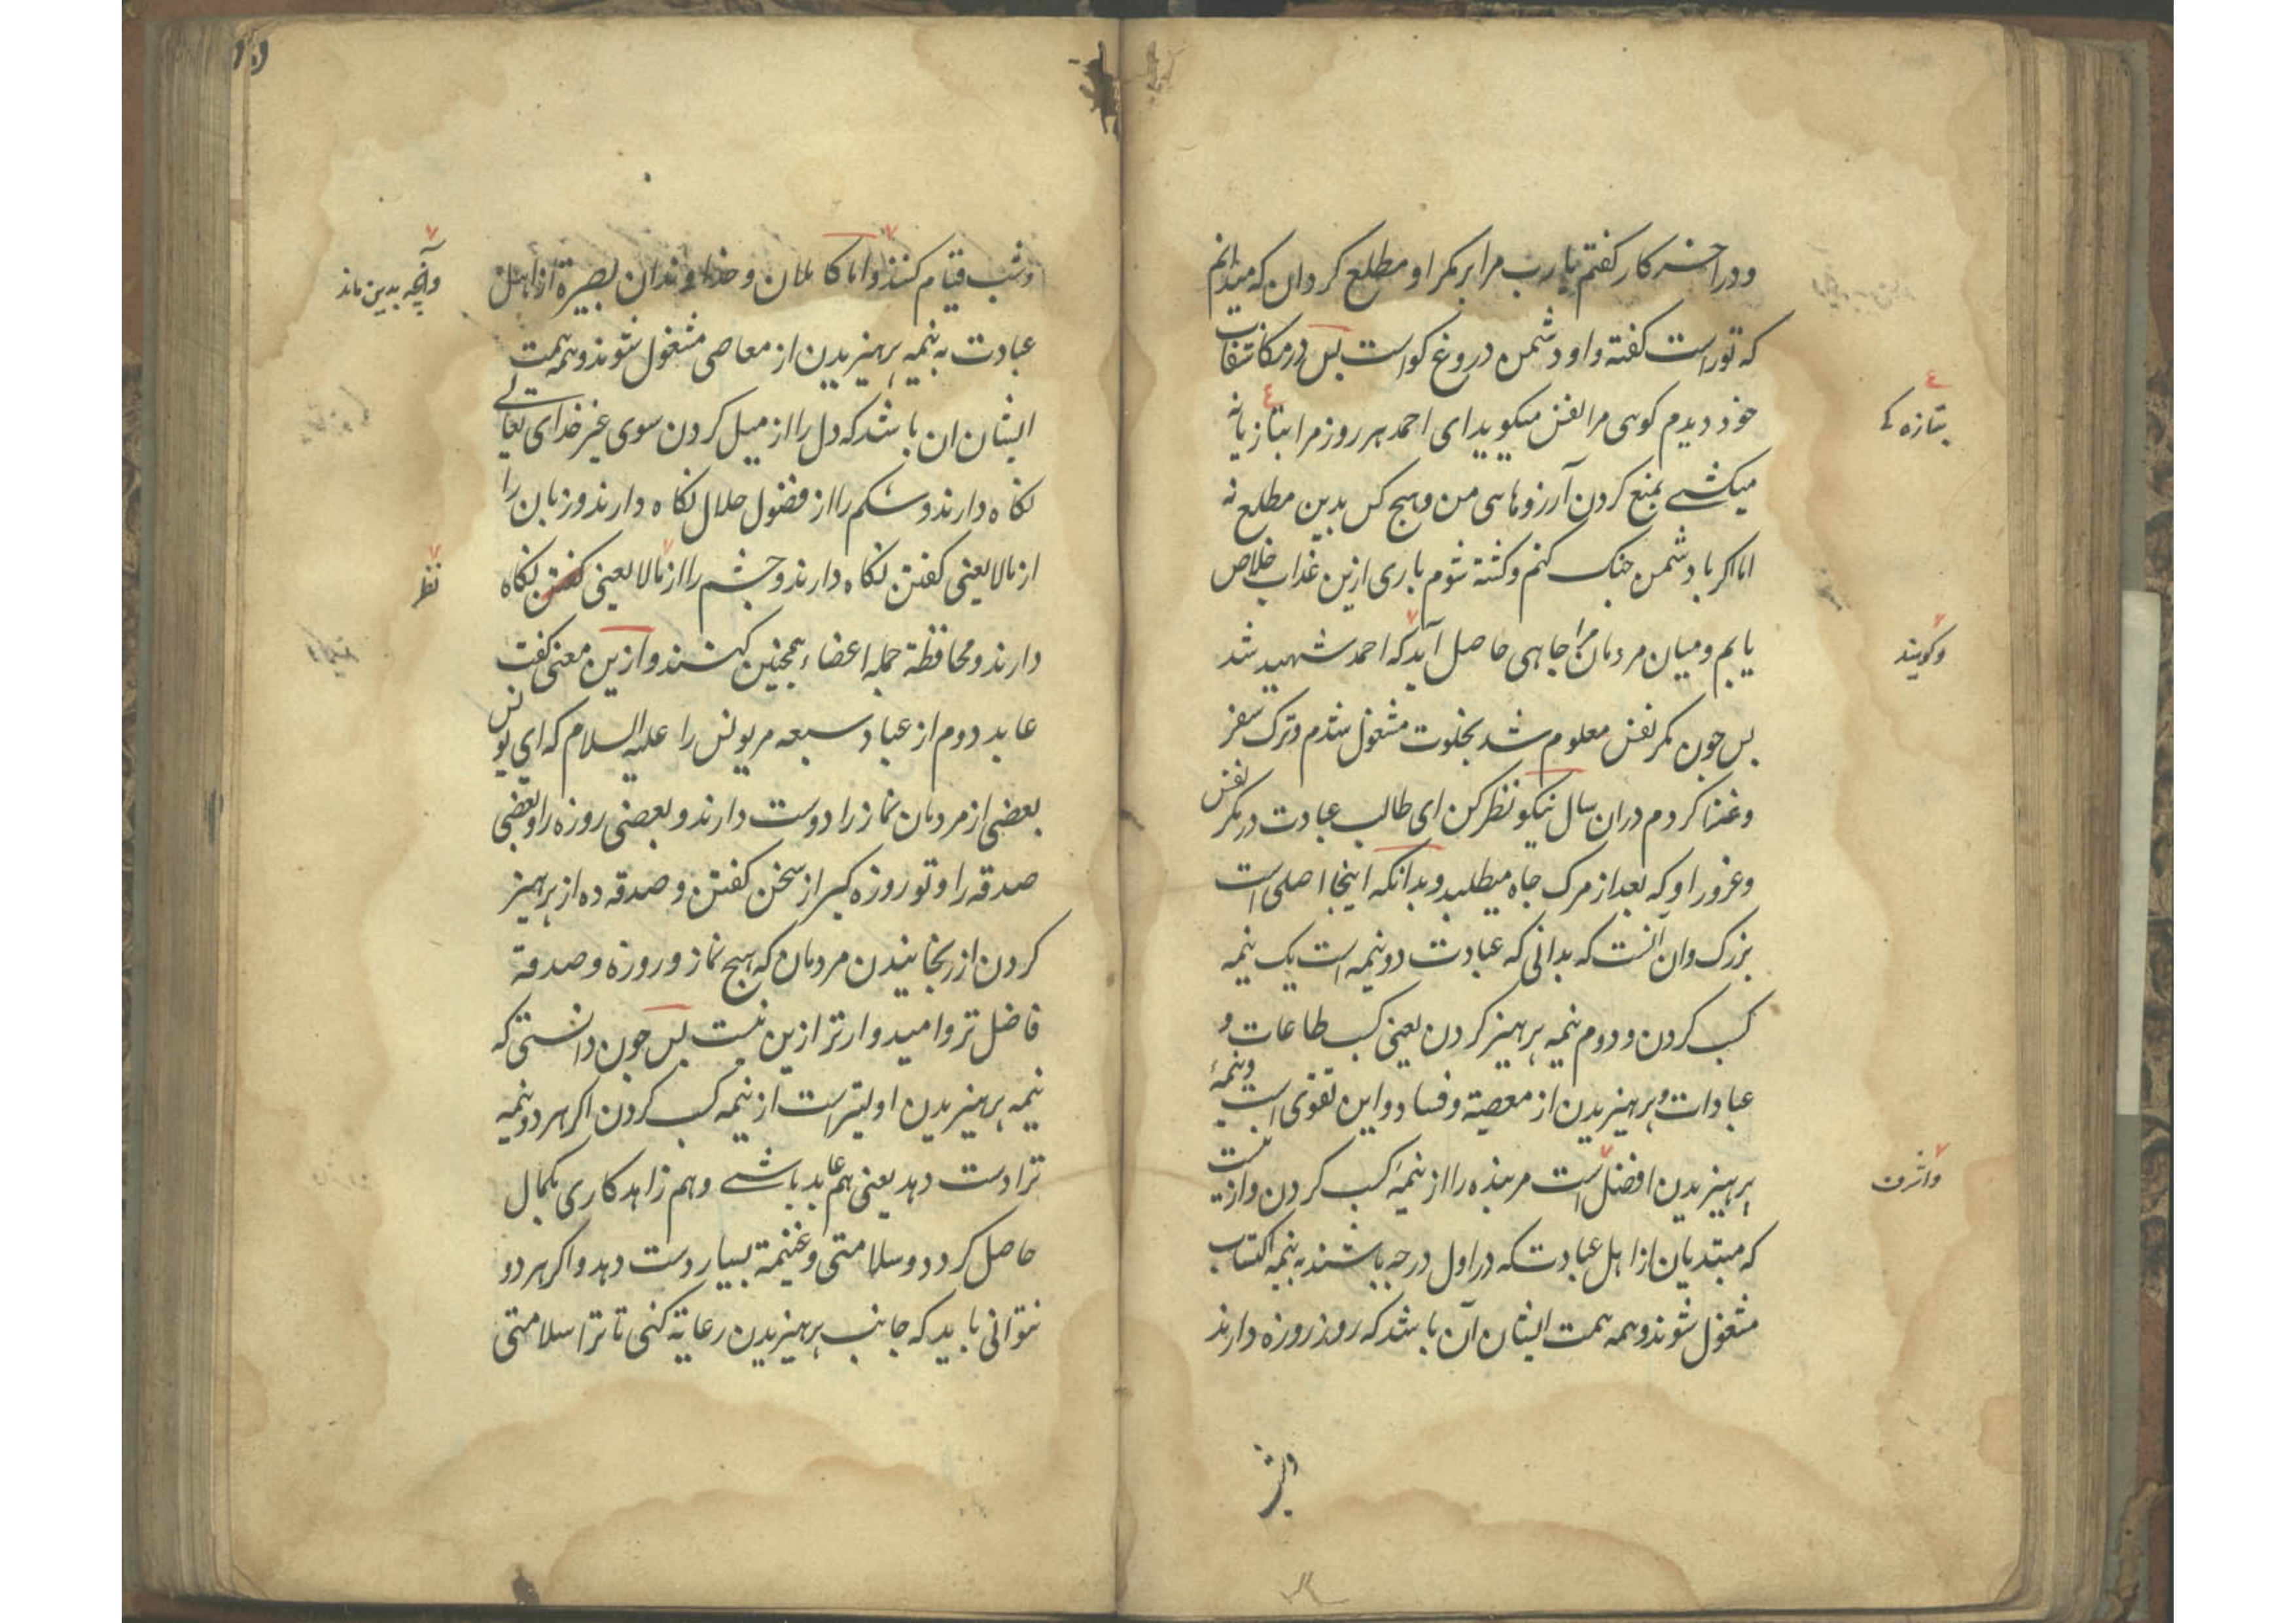 ودر اخر کار گفتم یا رب مرا بر مکر او مطلع کردان که میدانم
که تو راست گفته و او دشمن دروغ کو است بس در مکاشفات
خود دیدم کوی مرا نفس میکوید ای احمد هر روز مرا بتازیانه
بتازه کی
میکشی بمنع کردن آرزوهای من و هیج کس بدین مطلع نه
اما اکر با دشمن جنک کنم و کشته شوم باری ازین عذاب خلاص
یابم و میان مردمان مرا جاهی حاصل آید که احمد شهید شد
وکویند
بس جون مکر نفس معلوم شد بخلوت مشغول شدم و ترک سفر
و غزا کردم دران سال نیکو نظر کن ای طالب عبادت در مکر نفس
و غرور او که بعد از مرک جاه میطلبد و بدانکه اینجا اصلی است
بزرک وان آنست که بدانی که عبادت دو نیمه است یک نیمه
کسب کردن و دوم نیمه برهیز کردن یعنی کسب طاعات و
عبادات و برهیزیدن از معصیة و فساد و این تقوی است و نیمهٔ
برهیزیدن افضل است مر بنده را از نیمهٔ کسب کردن و ازینست
واشرف
که مبتدیان از اهل عبادت که در اول درجه باشند به نیمه اکتساب
مشغول شوند و همه همت ایشان آن باشد که روز روزه دارند
و شب قیام کنند و اما کاملان و خداوندان بصیرة از اهل
وآنچه بدین ماند
عبادت به نیمه برهیزیدن از معاصی مشغول شوند و همه همت
ایشان ان باشد که دل را از میل کردن سوی غیر خدای تعالی
نکاه دارند و شکم را از فضول حلال نکاه دارند و زبان را
از مالایعنی کفتن نکاه دارند و جشم را از مالایعنی کفتن نکاه
نظر
دارند و محافظة جمله اعضاء همجنین کنند و ازین معنی کفت
عابد دوم از عباد سبعه مر یونس را علیه السلام که ای یونس
بعضی از مردمان نماز را دوست دارند و بعضی روزه را و بعضی
صدقه را و تو روزه کیر از سخن کفتن و صدقه ده از برهیز
کردن از رنجانیدن مردمان که هیج نماز و روزه و صدقه
فاضل تر و امیدوارتر ازین نیست بس جون دانستی که
نیمه برهیزیدن اولیتر است از نیمه کسب کردن اکر هر دو نیمه
ترا دست دهد یعنی هم عابد باشی و هم زاهد کاری بکمال
حاصل کردد و سلامتی و غنیمة بسیار دست دهد و اکر هر دو
نتوانی باید که جانب برهیزیدن رعایة کنی تا ترا سلامتی